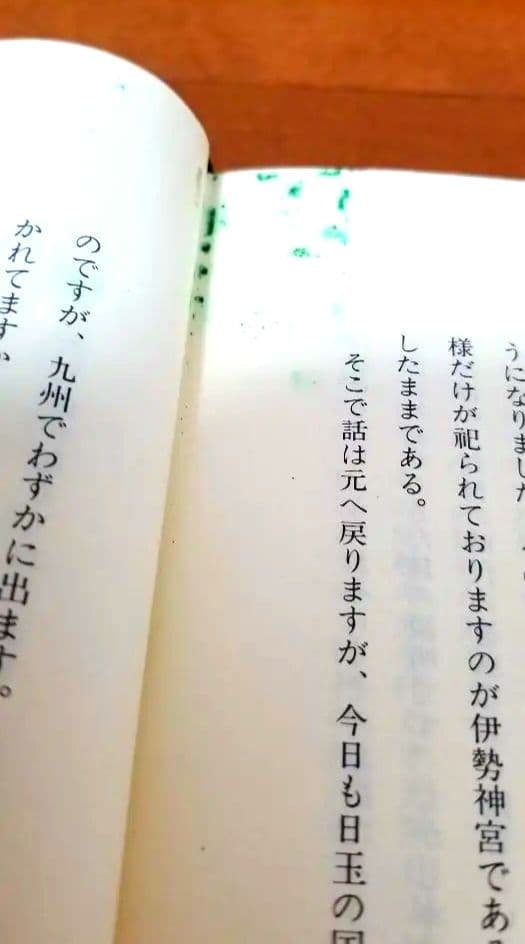 うになりました
様だけが祀られておりますのが伊勢神宮である
したままである。
そこで話は元へ戻りますが、今日も日玉の国
のですが、九州でわずかに出ます。
かれてますか